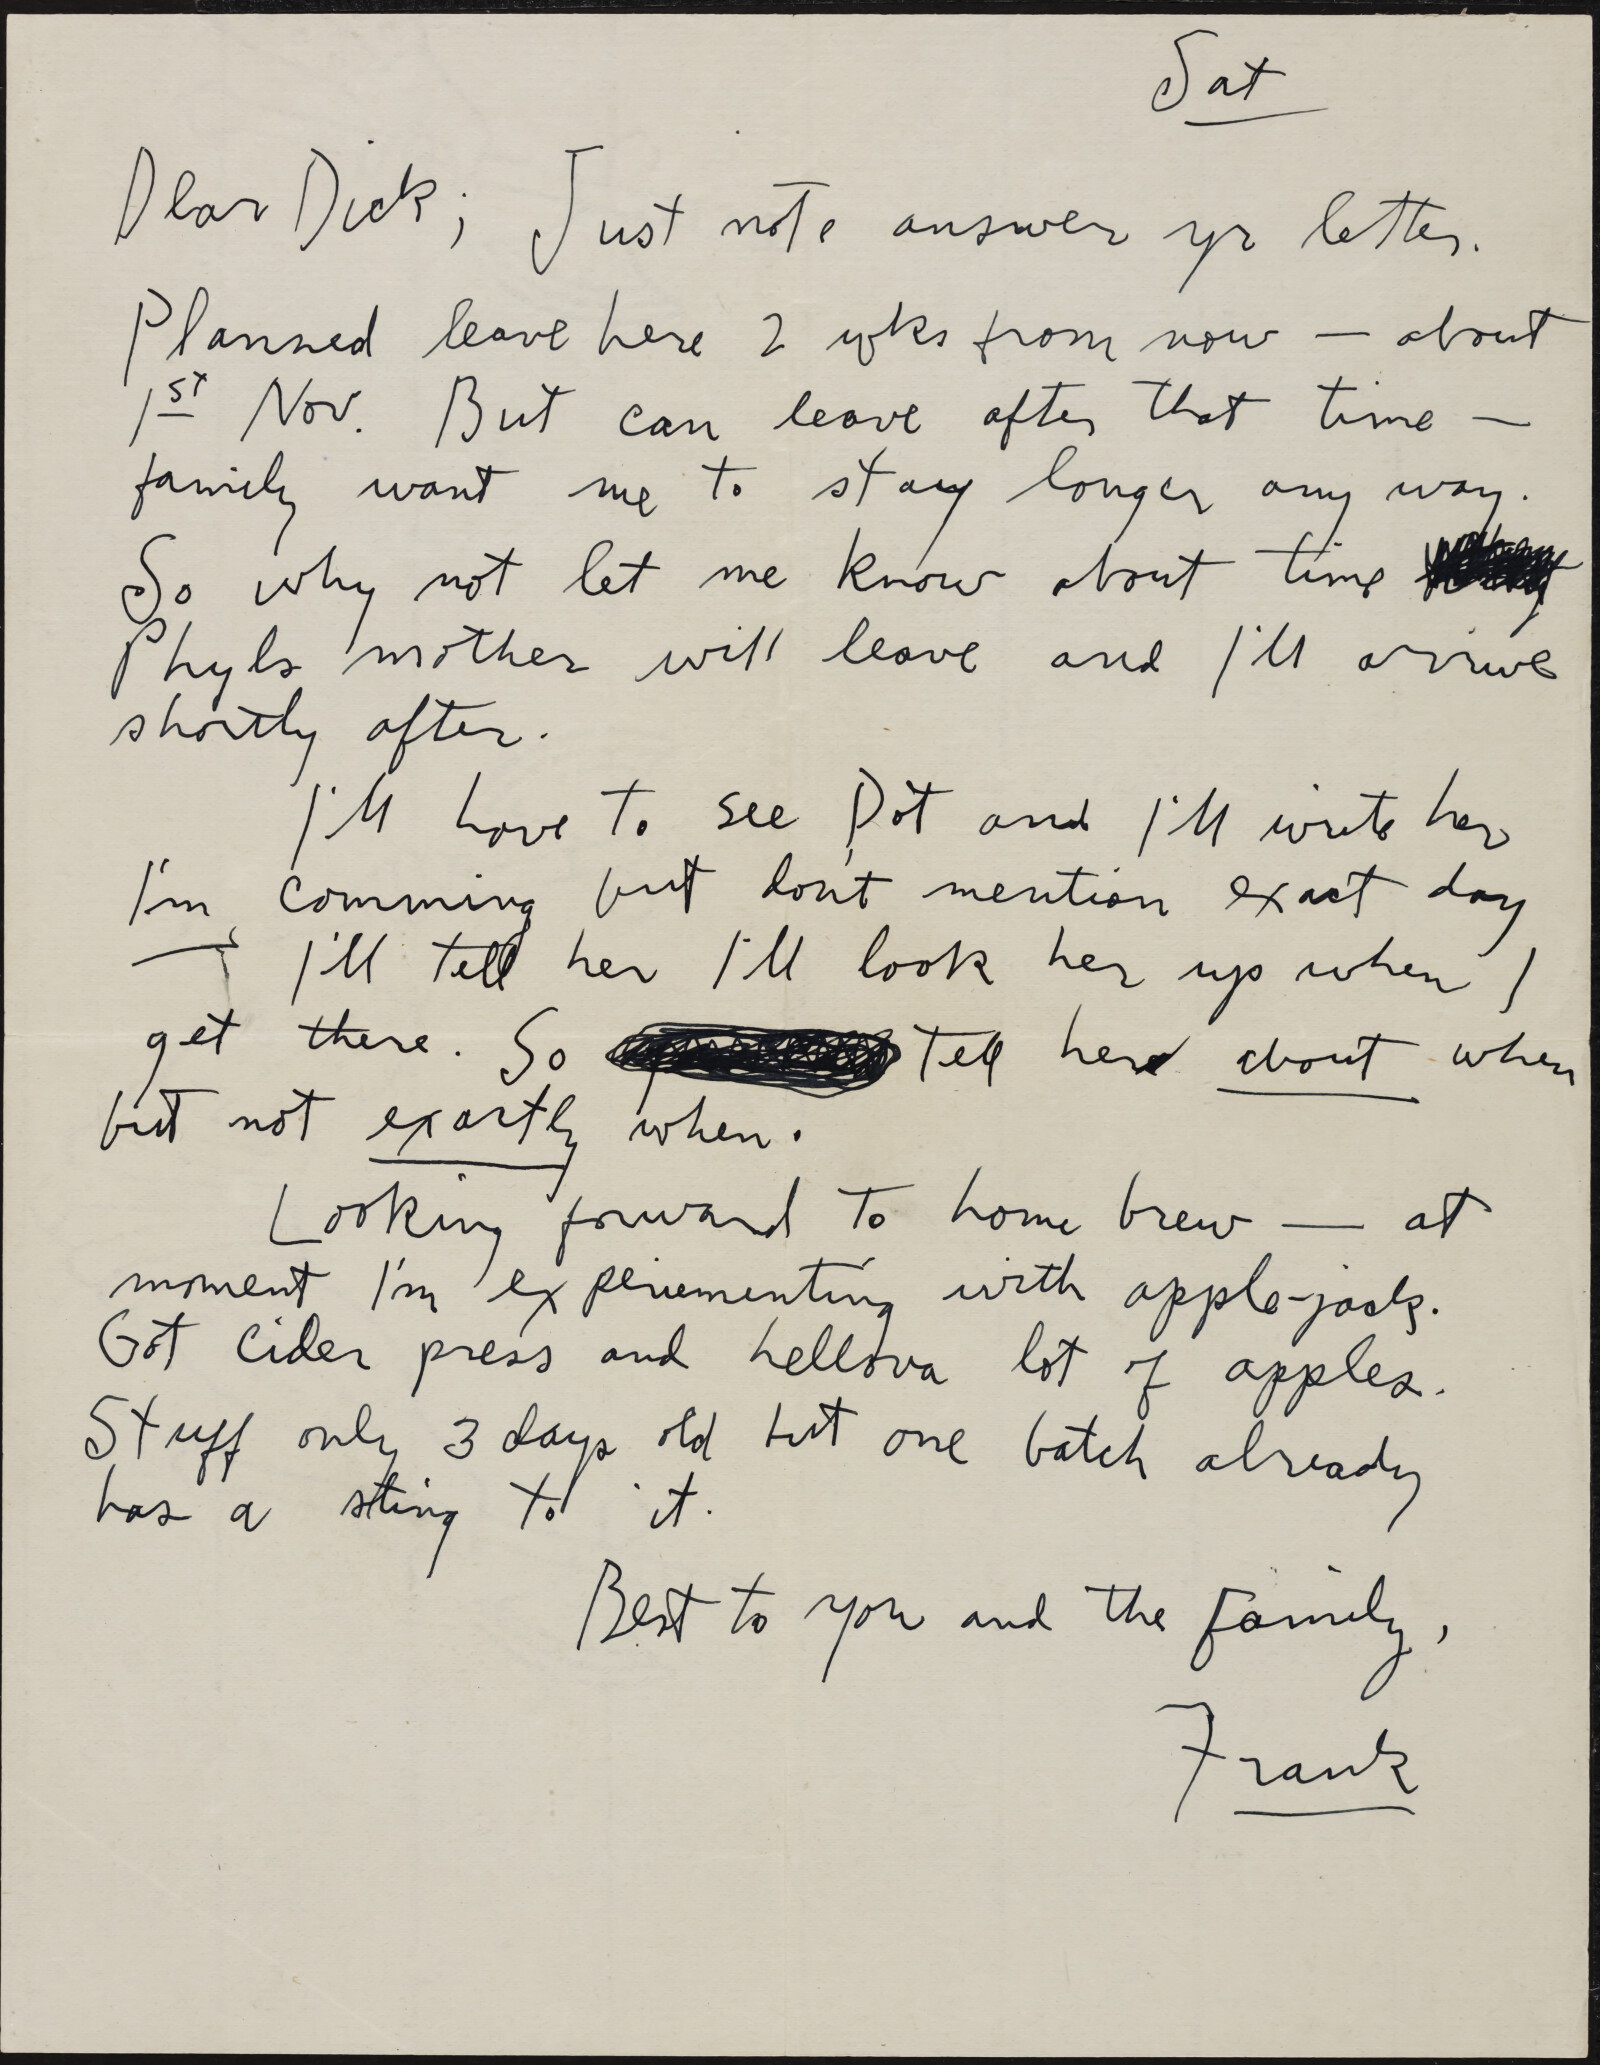 Sat
Dear Dick; Just note answer yr letter.
Planned leave here 2 wks from now — about
1st Nov. But can leave after that time —
family want me to stay longer any way.
So why not let me know about time
Phyls mother will leave and I'll arrive
shortly after.
I'll have to see Dot and I'll write her
I'm comming but don't mention exact day
I'll tell her I'll look her up when I
get there. So tell her about when
but not exactly when.
Looking forward to home brew — at
moment I'm experiementing with apple-jack.
Got cider press and hellova lot of apples.
Stuff only 3 days old but one batch already
has a sting to it.
Best to you and the family,
Frank